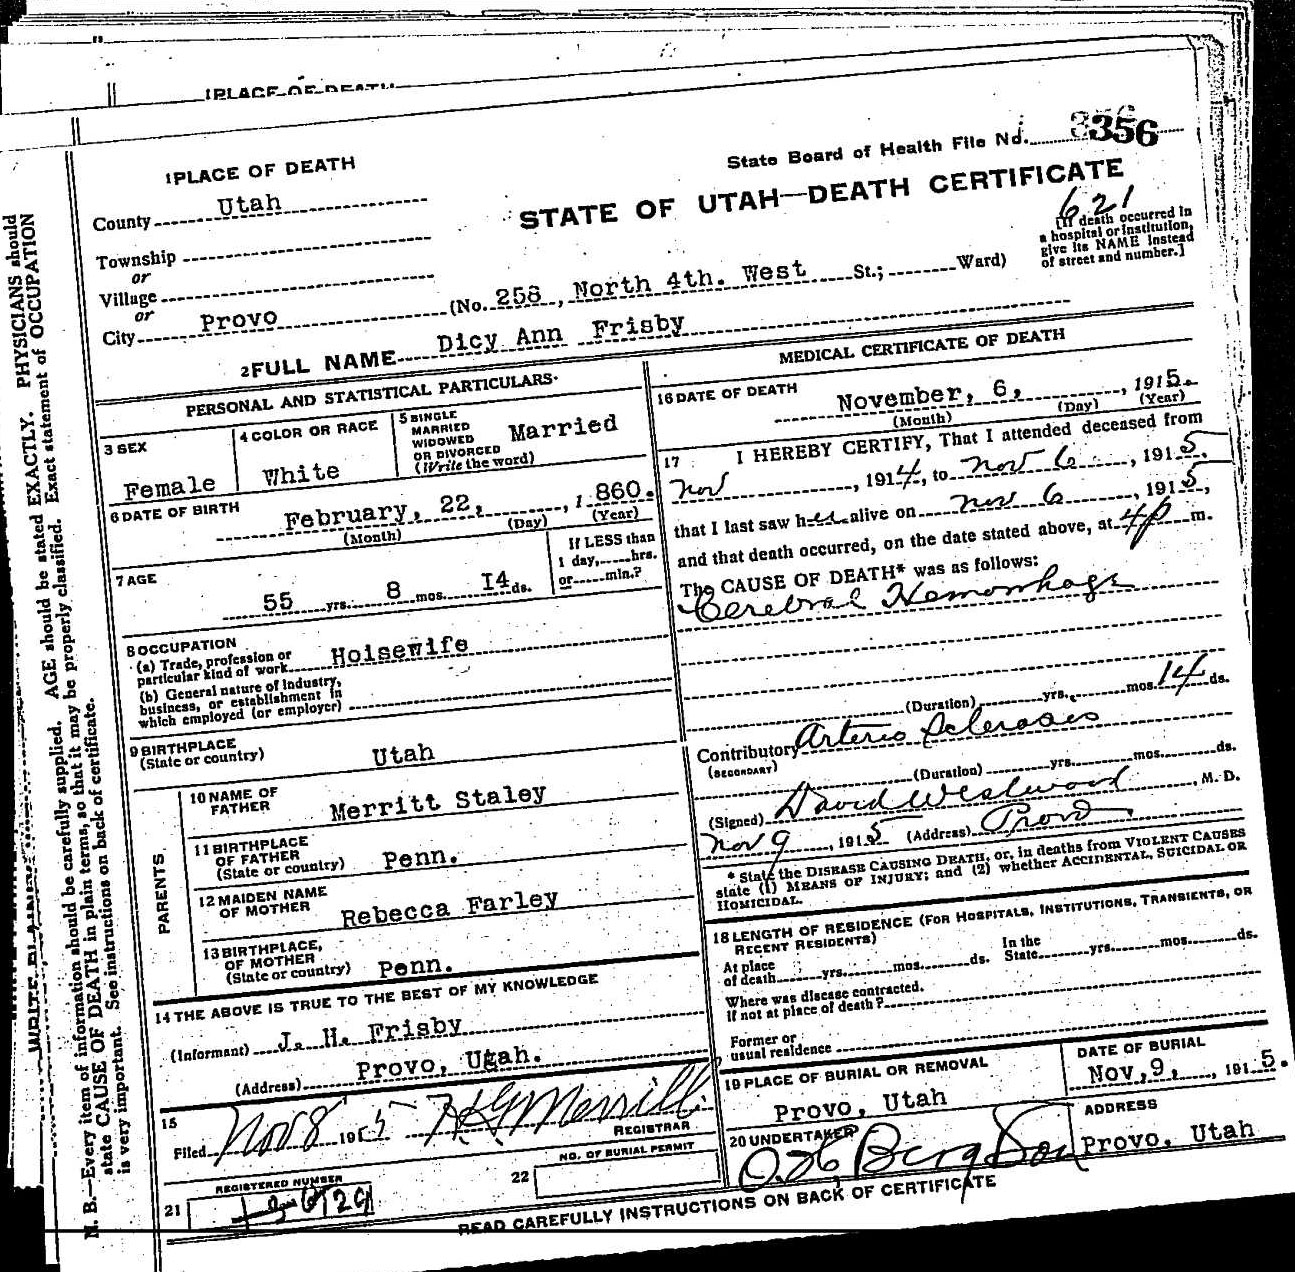 1 PLACE OF DEATH
State Board of Health File No. 356
1 PLACE OF DEATH
County Utah
STATE OF UTAH—DEATH CERTIFICATE
621
[If death occurred in
a hospital or institution,
give its NAME instead
of street and number.]
Township
or
Village
or
City Provo (No. 258, North 4th. West St.; Ward)
2 FULL NAME Dicy Ann Frisby
PERSONAL AND STATISTICAL PARTICULARS.
3 SEX
Female
4 COLOR OR RACE
White
5 SINGLE
MARRIED
WIDOWED
OR DIVORCED
(Write the word)
Married
6 DATE OF BIRTH
February, 22, , 1 860.
(Month) (Day) (Year)
7 AGE
55 yrs. 8 mos. I4 ds.
If LESS than
1 day, hrs.
or min.?
8 OCCUPATION
(a) Trade, profession or
particular kind of work Hoisewife
(b) General nature of industry,
business, or establishment in
which employed (or employer)
9 BIRTHPLACE
(State or country) Utah
PARENTS
10 NAME OF
FATHER Merritt Staley
11 BIRTHPLACE
OF FATHER
(State or country) Penn.
12 MAIDEN NAME
OF MOTHER Rebecca Farley
13 BIRTHPLACE,
OF MOTHER
(State or country) Penn.
14 THE ABOVE IS TRUE TO THE BEST OF MY KNOWLEDGE
(Informant) J. H. Frisby
(Address) Provo, Utah.
15
Filed Nov 8 1915 H G Merrill
REGISTRAR
REGISTERED NUMBER
21
22
NO. OF BURIAL PERMIT
MEDICAL CERTIFICATE OF DEATH
16 DATE OF DEATH
November, 6, , 1915.
(Month) (Day) (Year)
17 I HEREBY CERTIFY, That I attended deceased from
Nov , 1914, to Nov 6 , 1915.
that I last saw her alive on Nov 6 , 1915,
and that death occurred, on the date stated above, at 4 p m.
The CAUSE OF DEATH* was as follows:
Cerebral Hemorrhage
(Duration) yrs. mos. 14 ds.
Contributory Arterio Sclerosis
(SECONDARY)
(Duration) yrs. mos. ds.
(Signed) David Westwood , M. D.
Nov 9 , 1915 (Address) Provo
* State the DISEASE CAUSING DEATH, or, in deaths from VIOLENT CAUSES
state (1) MEANS OF INJURY; and (2) whether ACCIDENTAL, SUICIDAL OR
HOMICIDAL.
18 LENGTH OF RESIDENCE (FOR HOSPITALS, INSTITUTIONS, TRANSIENTS, OR
RECENT RESIDENTS)
At place
of death yrs. mos. ds.
In the
State yrs. mos. ds.
Where was disease contracted.
If not at place of death?
Former or
usual residence
19 PLACE OF BURIAL OR REMOVAL
Provo, Utah
DATE OF BURIAL
Nov, 9, , 191 5.
20 UNDERTAKER
Berg & Son
ADDRESS
Provo, Utah
READ CAREFULLY INSTRUCTIONS ON BACK OF CERTIFICATE
N. B.—Every item of information should be carefully supplied. AGE should be stated EXACTLY. PHYSICIANS should
state CAUSE OF DEATH in plain terms, so that it may be properly classified. Exact statement of OCCUPATION
is very important. See instructions on back of certificate.